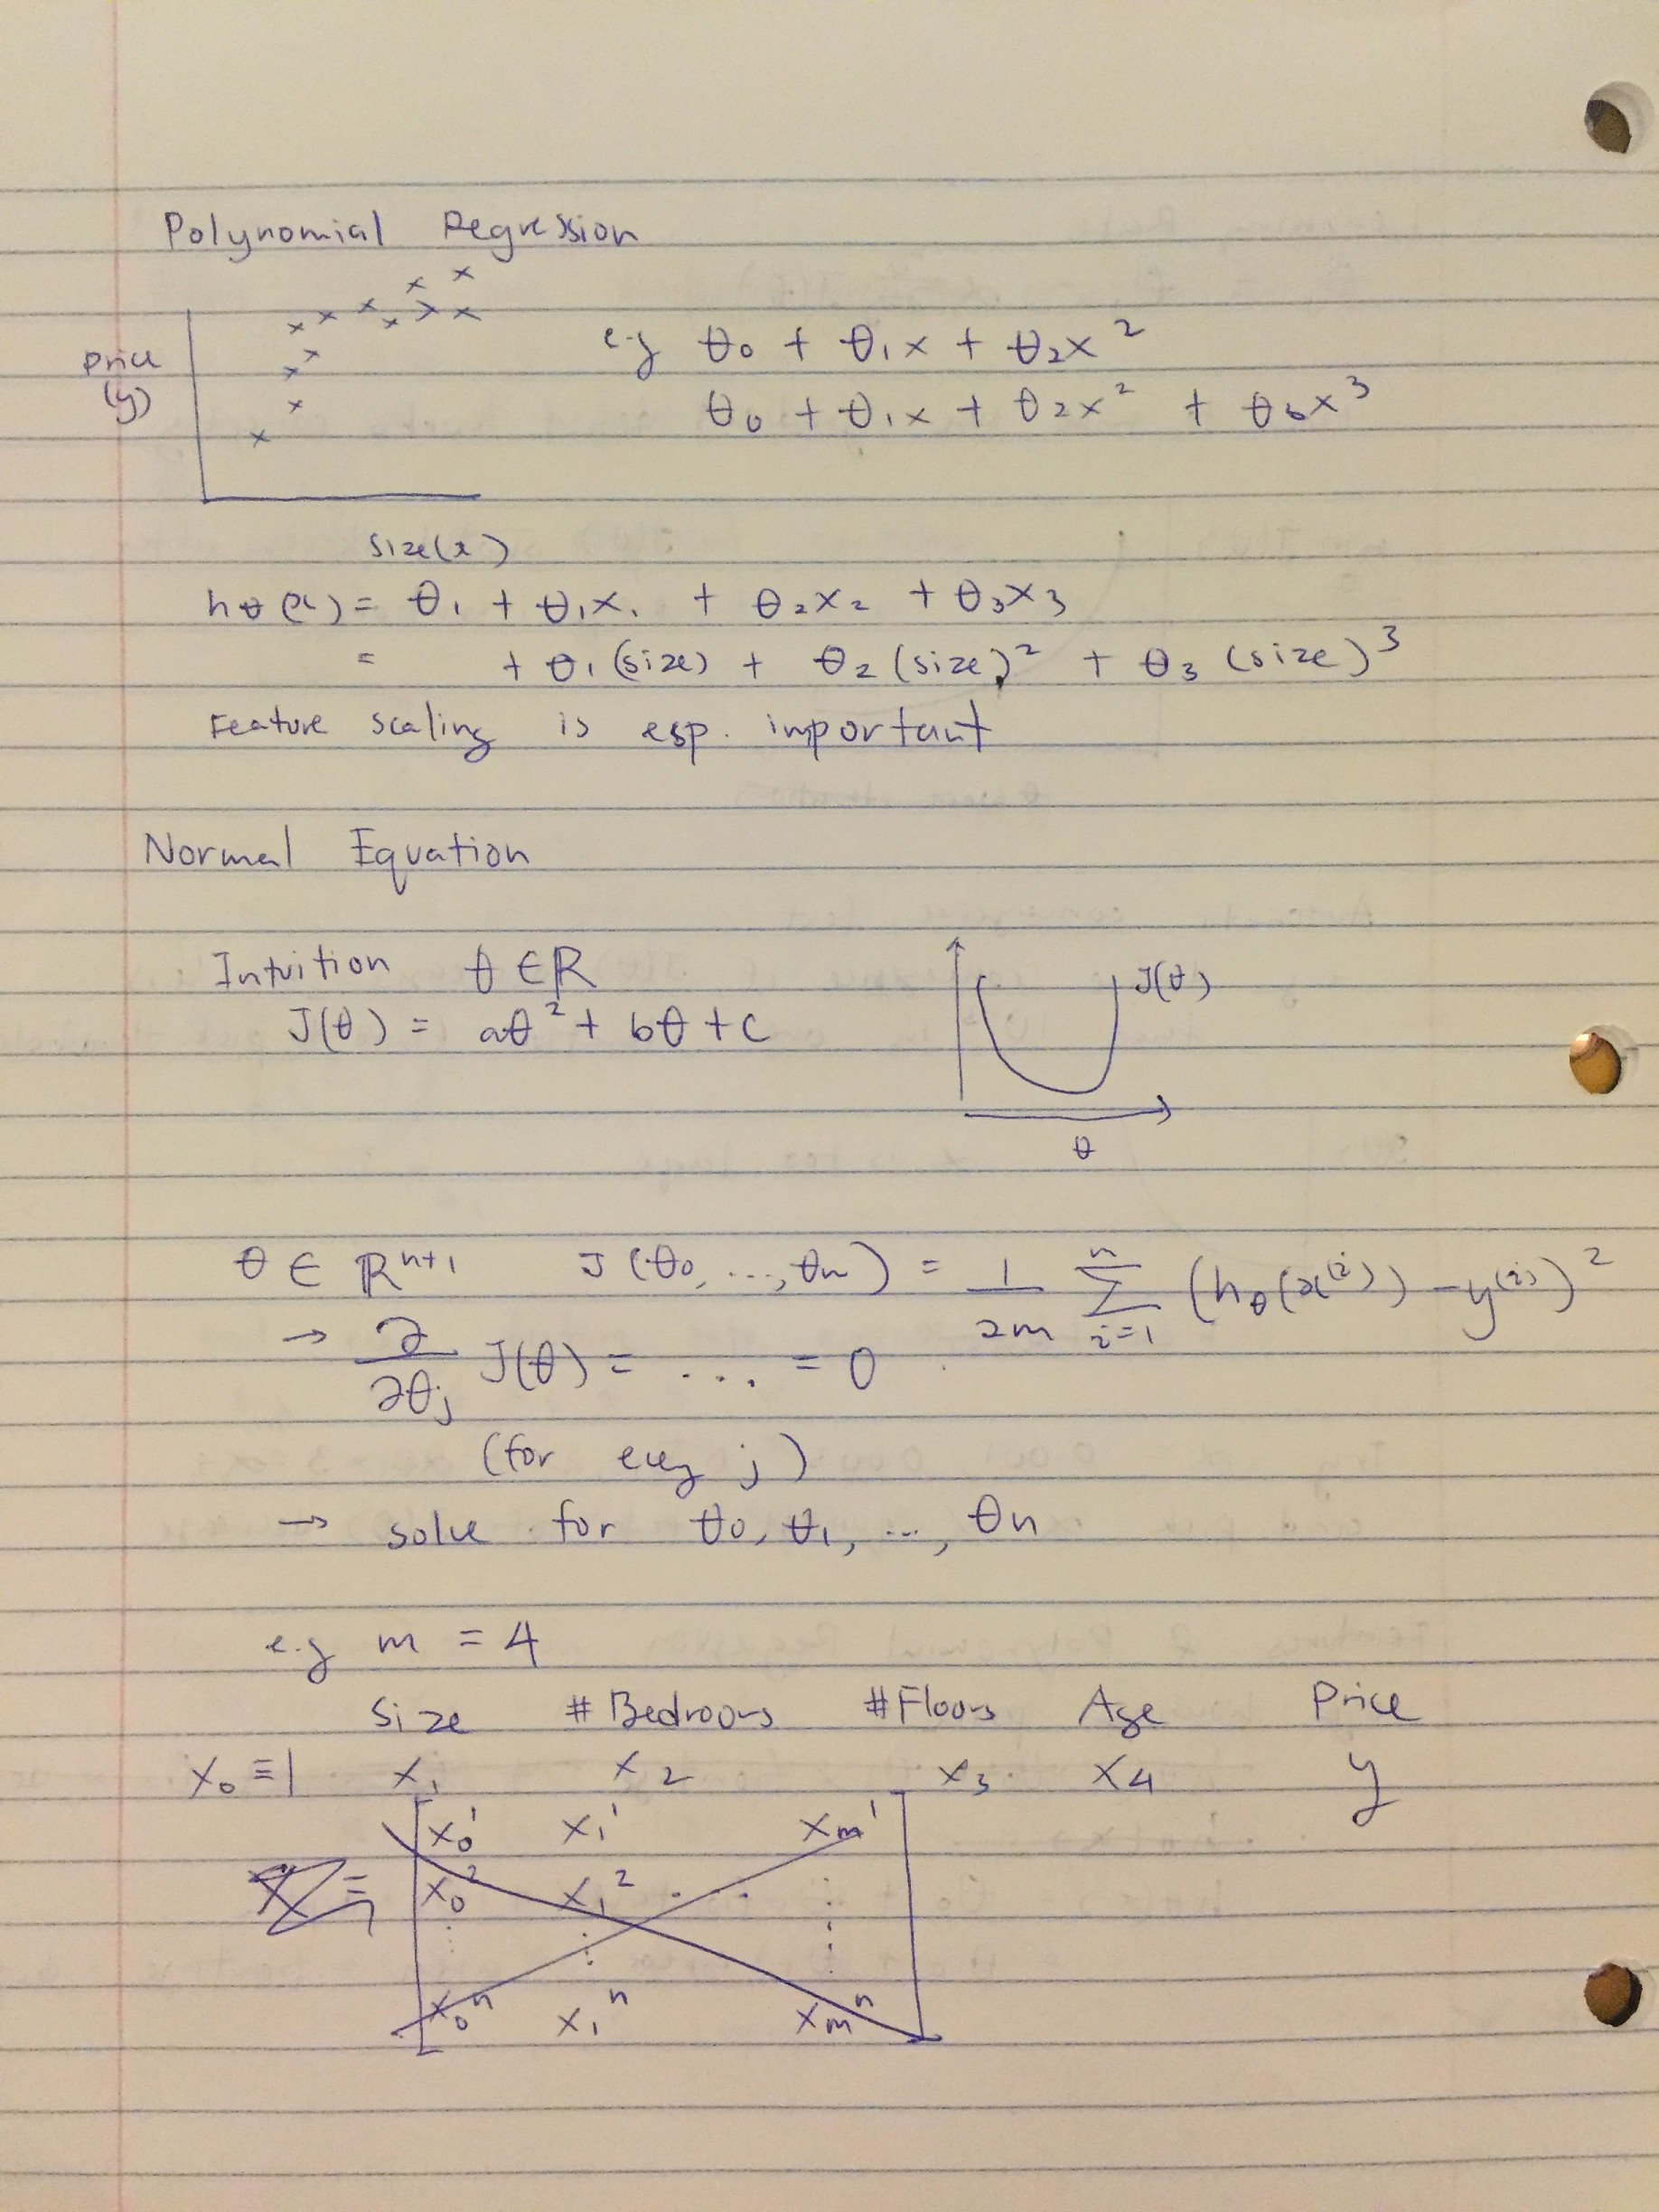 Polynomial Regression
Price
(y)
e.g θ0 + θ1x + θ2x²
θ0 + θ1x + θ2x² + θ6x³
Size(x)
hθ(x) = θ1 + θ1x1 + θ2x2 + θ3x3
= + θ1(size) + θ2(size)² + θ3(size)³
Feature scaling is esp. important
Normal Equation
Intuition θ ∈ ℝ
J(θ) = aθ² + bθ + c
J(θ)
θ
θ ∈ ℝⁿ⁺¹ J(θ0, ..., θn) = 1/2m Σ_{i=1}^{n} (hθ(x⁽ⁱ⁾) - y⁽ⁱ⁾)²
→ ∂/∂θj J(θ) = ... = 0
(for every j)
→ solve for θ0, θ1, ..., θn
e.g m = 4
Size # Bedrooms #Floors Age Price
x0 ≡ 1 x1 x2 x3 x4 y
x0¹ x1¹ xm¹
X = x0² x1² ...
x0ⁿ x1ⁿ xmⁿ